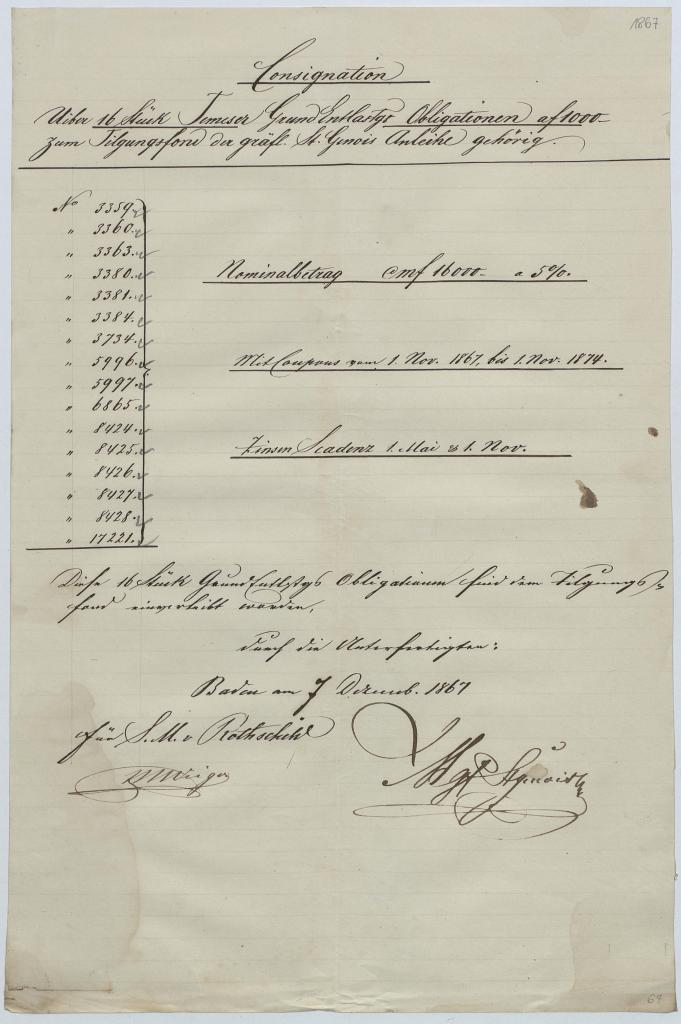 1867
Consignation
Uiber 16 Stück Temeser GrundEntlastgs Obligationen af 1000-
zum Tilgungsfond der gräfl. St. Genois Anleihe gehörig.
No 3359.
" 3360.
" 3363.
" 3380. Nominalbetrag Cmf 16000- a 5%.
" 3381.
" 3384.
" 3734.
" 5996. Mit Coupons vom 1. Nov. 1867, bis 1. Nov. 1874.
" 5997.
" 6865.
" 8424.
" 8425. Zinsen Scadenz 1. Mai & 1. Nov.
" 8426.
" 8427.
" 8428.
" 17221.
Diese 16 Stück GrundEntlstgs Obligationen sind dem Tilgungs=
fond einverleibt worden,
durch die Unterfertigten:
Baden am 7 Dezemb. 1867
für S. M. v Rothschild
St Genois
67